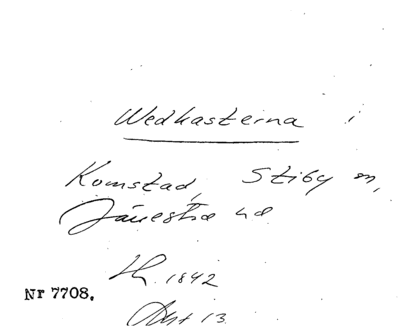 Wedkasterna i
Komstad, Stiby sn,
Järrestads hd
1842
Nr 7708.
13.